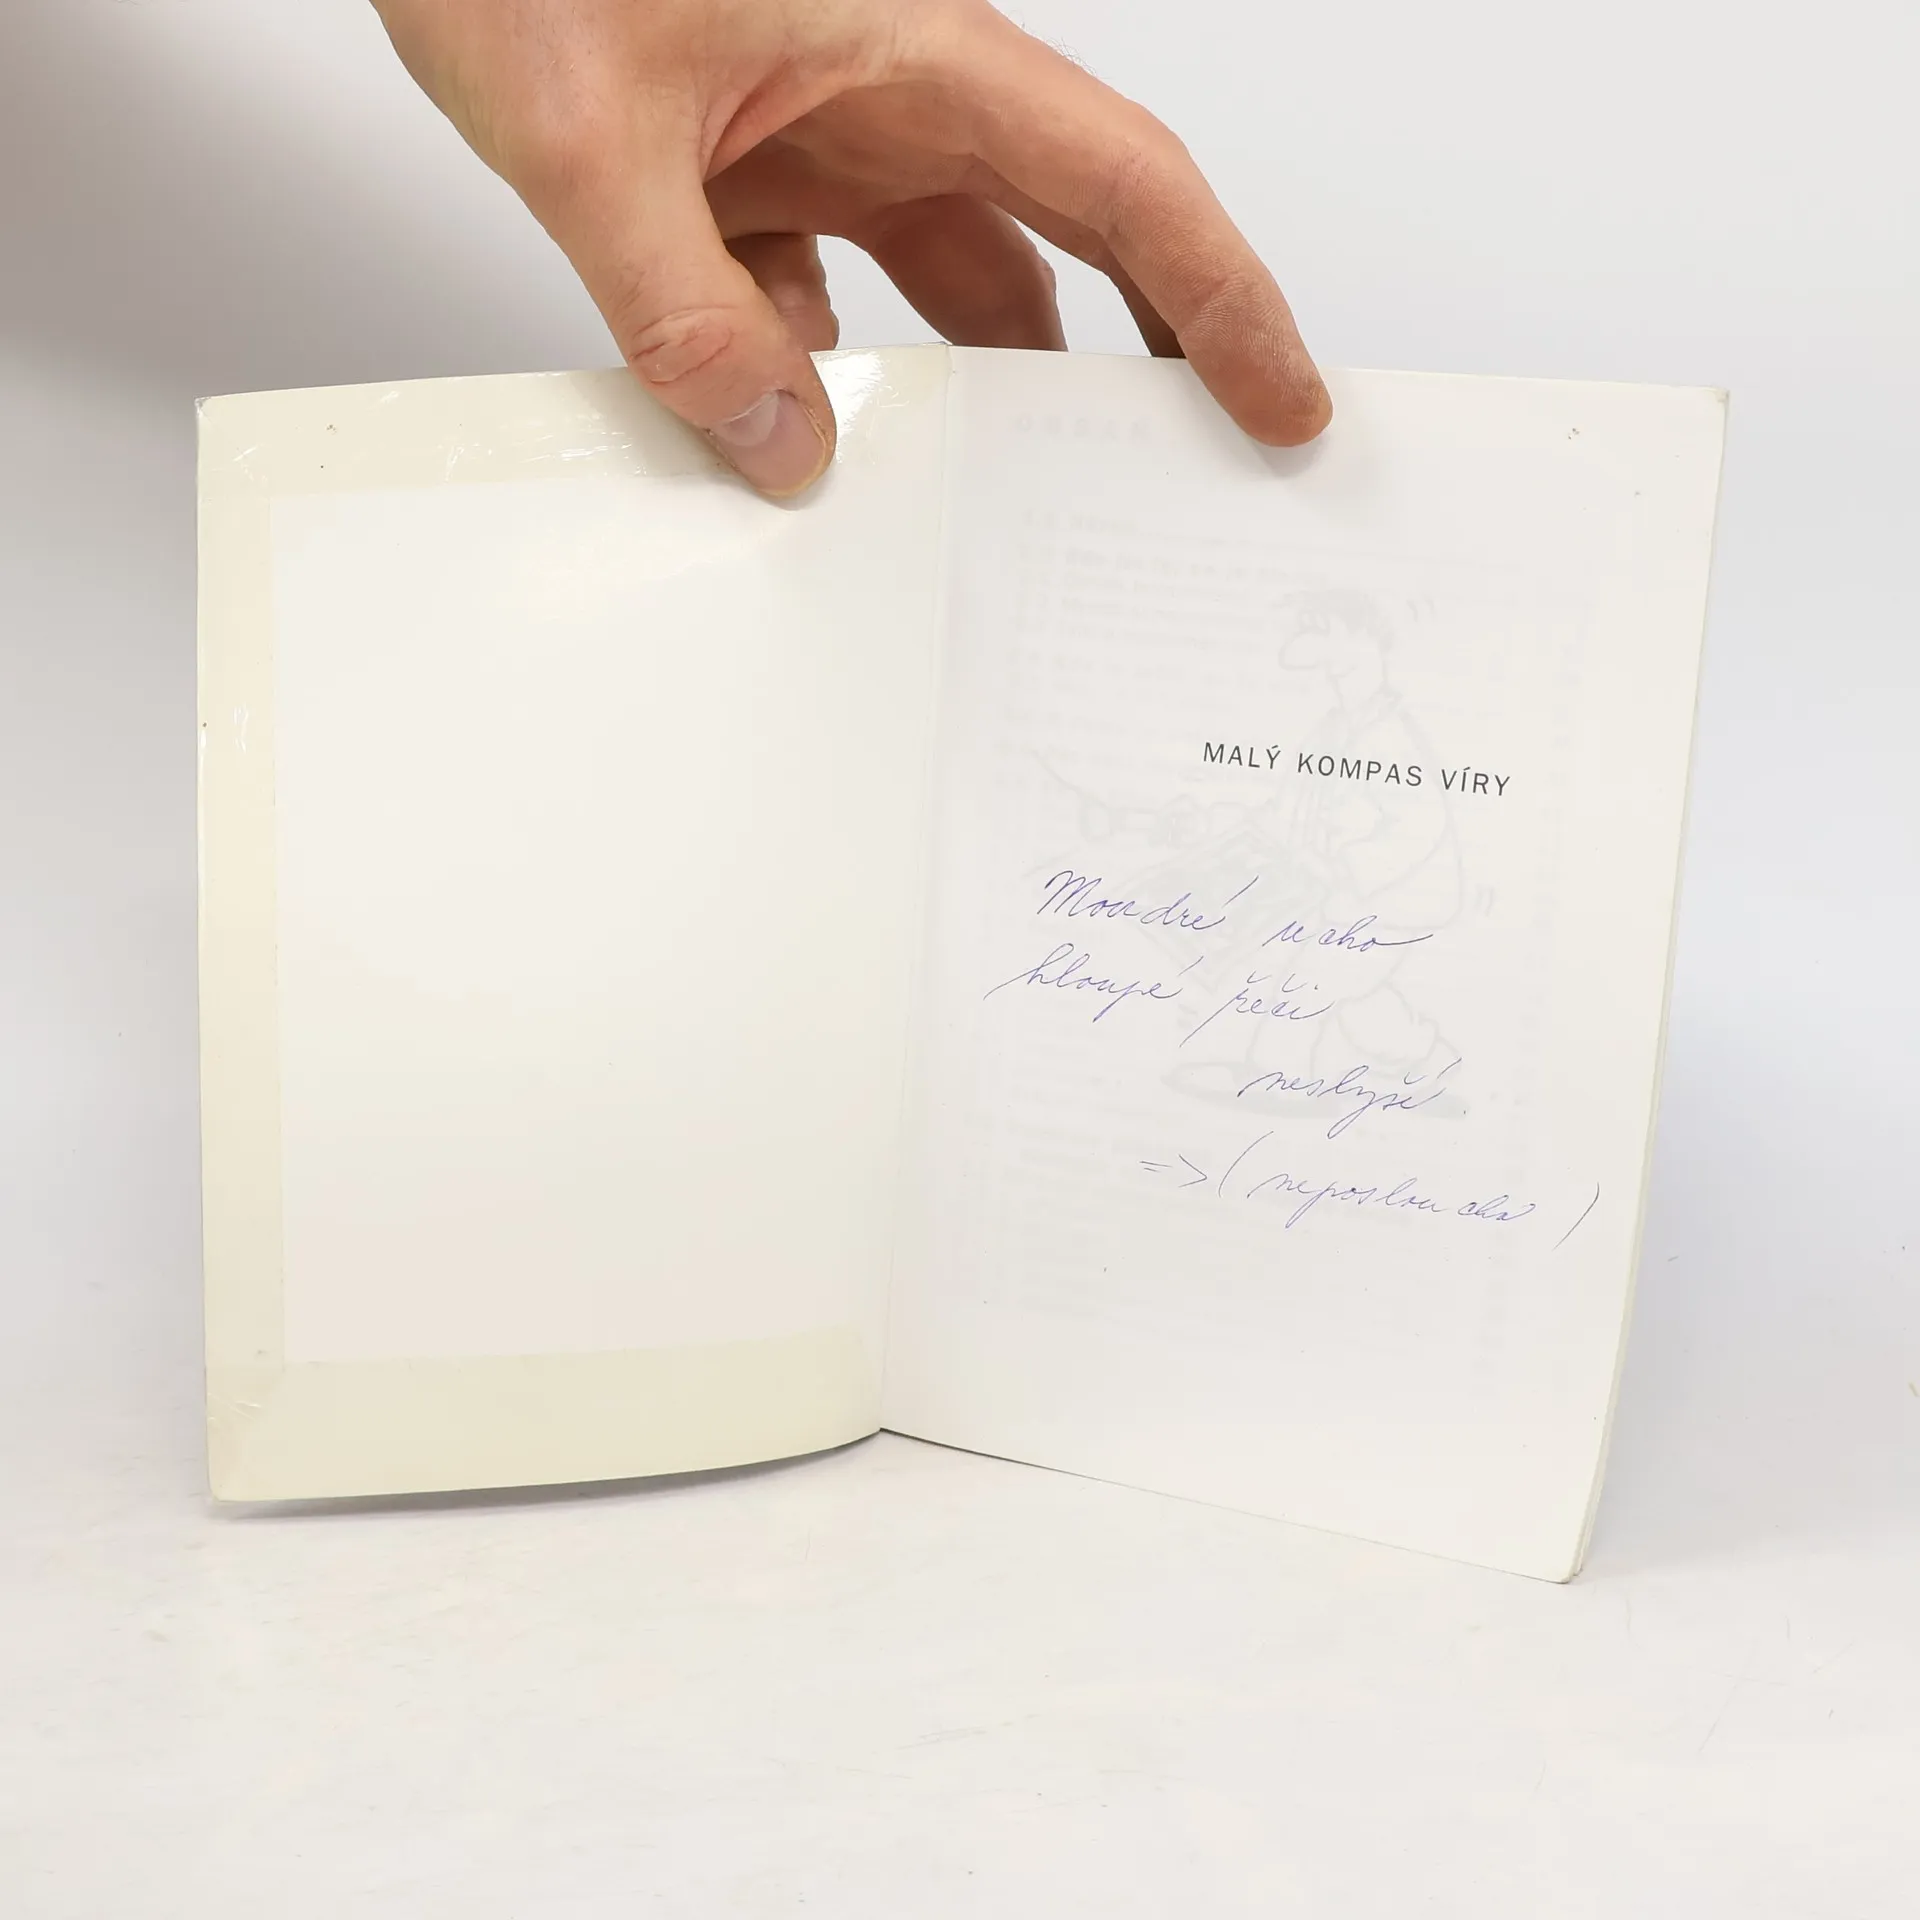 MALÝ KOMPAS VÍRY
Moudré ucho
hloupé řeči
neslyší.
=> (neposlouchá)